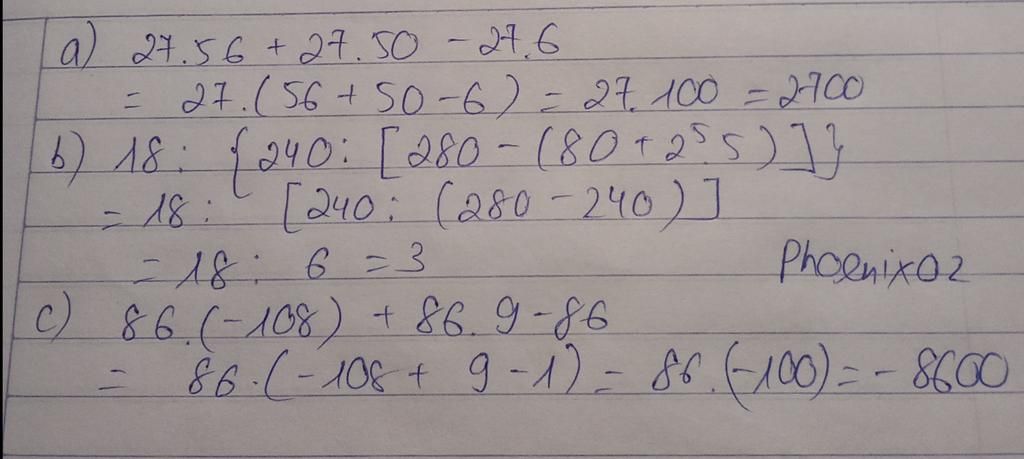 a) 27.56 + 27.50 - 27.6
= 27.(56 + 50 - 6) = 27.100 = 2700
b) 18 : {240 : [280 - (80 + 2⁵.5)]}
= 18 : [240 : (280 - 240)]
= 18 : 6 = 3 Phoenix02
c) 86.(-108) + 86.9 - 86
= 86.(-108 + 9 - 1) = 86.(-100) = -8600